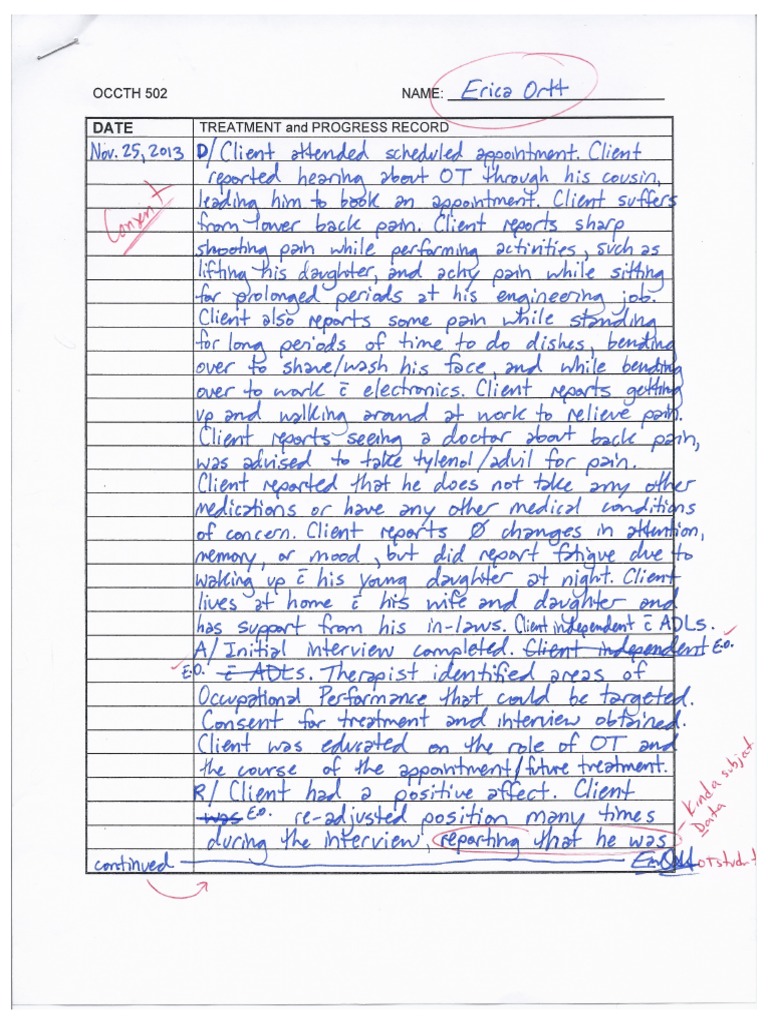 OCCTH 502 NAME: Erica Ortt
DATE TREATMENT and PROGRESS RECORD
Nov. 25, 2013 D/ Client attended scheduled appointment. Client
reported hearing about OT through his cousin,
leading him to book an appointment. Client suffers
Consent
from lower back pain. Client reports sharp
shooting pain while performing activities, such as
lifting his daughter, and achy pain while sitting
for prolonged periods at his engineering job.
Client also reports some pain while standing
for long periods of time to do dishes, bending
over to shave/wash his face, and while bending
over to work c̄ electronics. Client reports getting
up and walking around at work to relieve pain.
Client reports seeing a doctor about back pain,
was advised to take tylenol/advil for pain.
Client reported that he does not take any other
medications or have any other medical conditions
of concern. Client reports Ø changes in attention,
memory, or mood, but did report fatigue due to
waking up c̄ his young daughter at night. Client
lives at home c̄ his wife and daughter and
has support from his in-laws. Client independent c̄ ADLs.
A/ Initial interview completed. Client independent E.O.
E.O. c̄ ADLs. Therapist identified areas of
Occupational Performance that could be targeted.
Consent for treatment and interview obtained.
Client was educated on the role of OT and
the course of the appointment/future treatment.
R/ Client had a positive affect. Client
was E.O. re-adjusted position many times
during the interview, reporting that he was
Kinda subject
Data
continued OT student